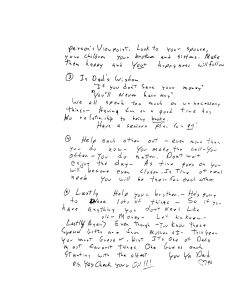 person's Viewpoint. Look to your spouse,
your children your brothers and sisters. Make
them happy and your happiness will follow
③ In Dad's Wisdom
"If you don't save your money"
"you'll never have any"
We all spend too much on unnecessary
things - Having fun or a good time has
no relationship to being broke.
Have a savings plan
④ Help each other out - even more than
you do now - You make the call - You
often - You do matter. Don't wait
Enjoy the days - As time goes on you
will become even closer. In time of real
need you will be there for each other
⑤ Lastly Help your brother - He's going
to lots of things - So if you
have anything you don't need like
Money - Let him know -
Lastly Even though - You know there
are from Mother & I -
you must Guess it. Hint It's one of Dad's
most favorite things. One Guess each
Starting with the oldest Love Ya Dad
P.S. Yes Check your Oil !!!